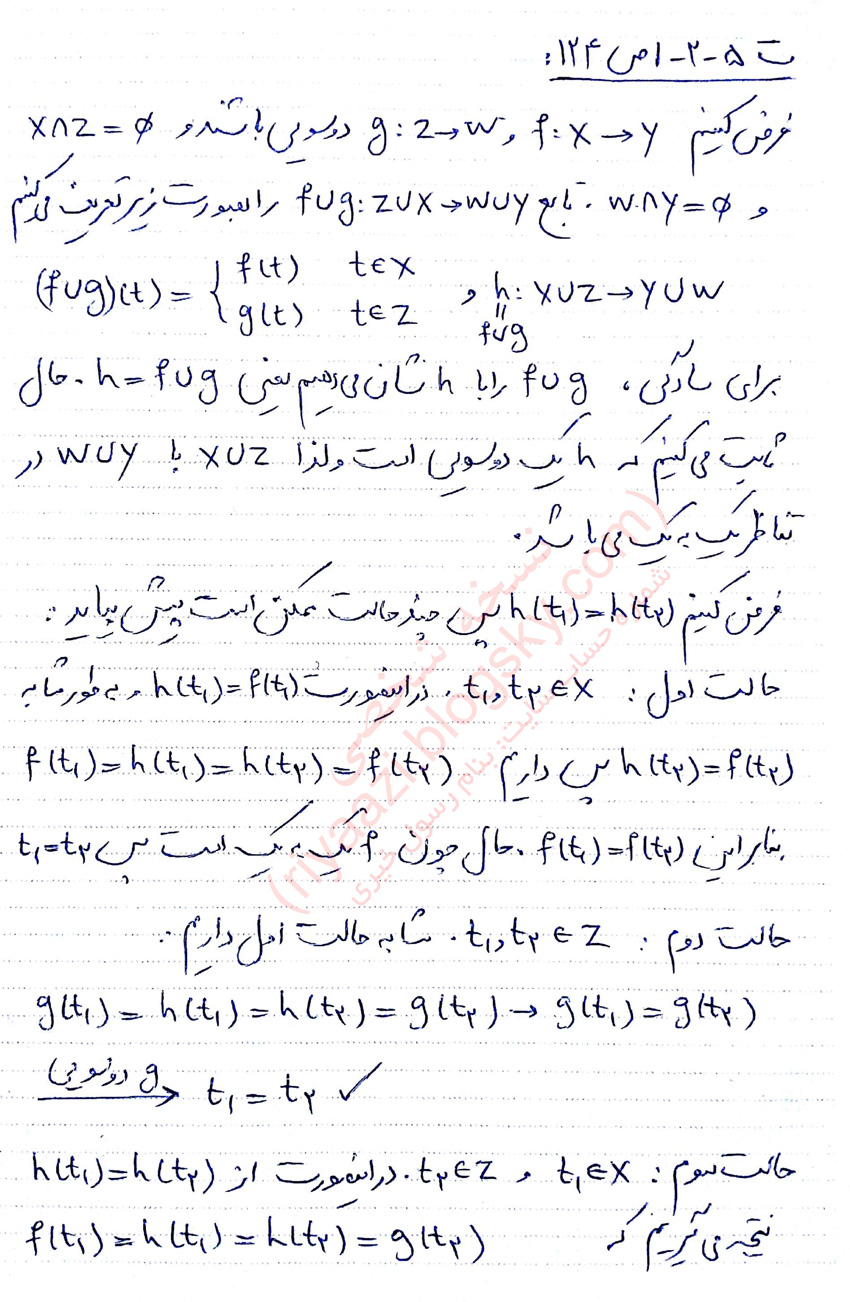 ت ۵-۲-۱ ص ۱۲۴:
فرض کنیم f: X → Y و g: Z → W دوسویی باشند و X∩Z = ∅
و W∩Y = ∅. تابع f∪g: Z∪X → W∪Y را بصورت زیر تعریف می‌کنیم
(f∪g)(t) = { f(t) t∈X
g(t) t∈Z و h: X∪Z → Y∪W
=
f∪g
برای سادگی، f∪g را با h نشان می‌دهیم یعنی h = f∪g. حال
ثابت می‌کنیم که h یک دوسویی است ولذا X∪Z با W∪Y در
تناظر یک به یک می‌باشد.
فرض کنیم h(t₁) = h(t₂) پس چند حالت ممکن است پیش بیاید:
حالت اول: t₁, t₂ ∈ X. در اینصورت h(t₁) = f(t₁) و به طور مشابه
h(t₂) = f(t₂) پس داریم f(t₁) = h(t₁) = h(t₂) = f(t₂)
بنابراین f(t₁) = f(t₂). حال چون f یک به یک است پس t₁ = t₂
حالت دوم: t₁, t₂ ∈ Z. مشابه حالت اول داریم:
g(t₁) = h(t₁) = h(t₂) = g(t₂) → g(t₁) = g(t₂)
g دوسویی → t₁ = t₂ ✓
حالت سوم: t₁∈X و t₂∈Z. در اینصورت از h(t₁) = h(t₂)
نتیجه می‌گیریم که f(t₁) = h(t₁) = h(t₂) = g(t₂)
نسخه شخصی
(riyaazi.blogsky.com)
شماره حساب سایت: بنام رسول خیری